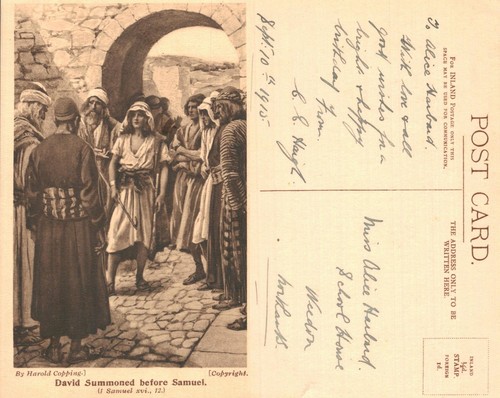 By Harold Copping.]
[Copyright.
David Summoned before Samuel.
(I Samuel xvi., 12.)
POST CARD.
FOR INLAND POSTAGE ONLY THIS
SPACE MAY BE USED FOR COMMUNICATION.
THE ADDRESS ONLY TO BE
WRITTEN HERE.
INLAND
½d.
STAMP
FOREIGN
1d.
To Alice Harbard.
With love & all
good wishes for a
bright & happy
birthday from
C. E. Haigh.
Sept. 10th 1915.
Miss Alice Harbard.
School House
Weedon
Northants.